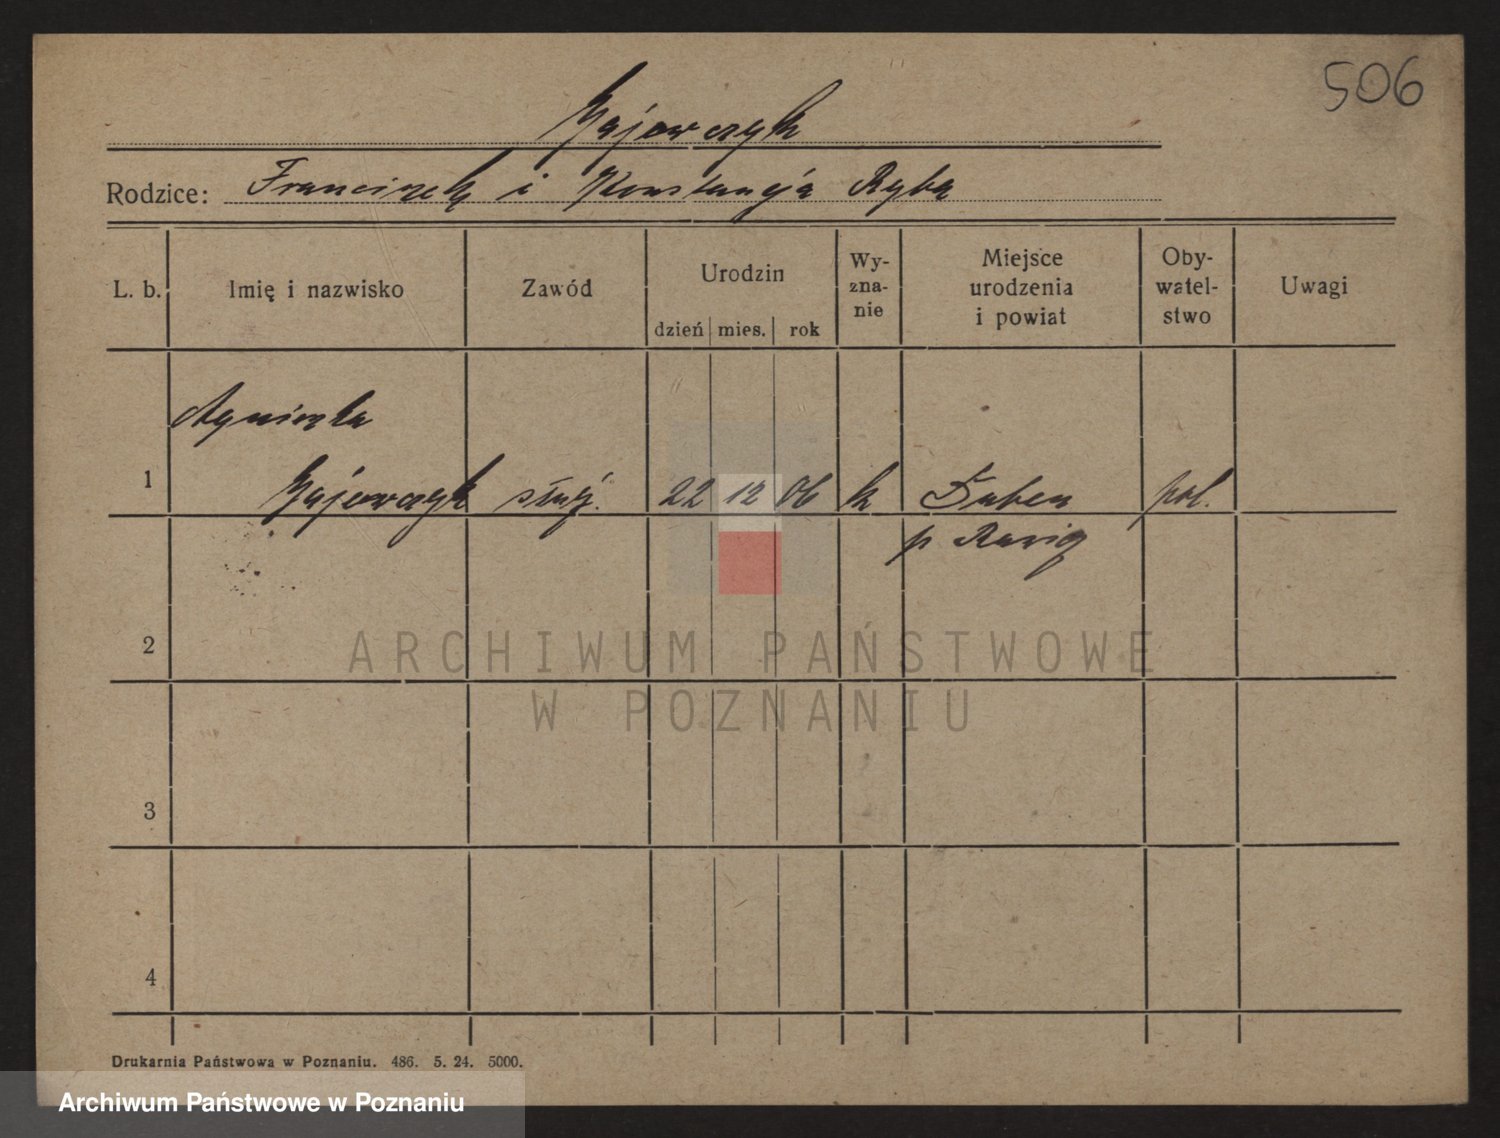 506
Gajewczyk
Rodzice: Franciszek i Konstancja Ryba
L. b. Imię i nazwisko Zawód Urodzin Wy-zna-nie Miejsce urodzenia i powiat Oby-watel-stwo Uwagi
dzień mies. rok
Agnieszka
1 Gajewczyk służ. 22 12 06 k Duben pol.
p
2
ARCHIWUM PAŃSTWOWE
W POZNANIU
3
4
Drukarnia Państwowa w Poznaniu. 486. 5. 24. 5000.
Archiwum Państwowe w Poznaniu